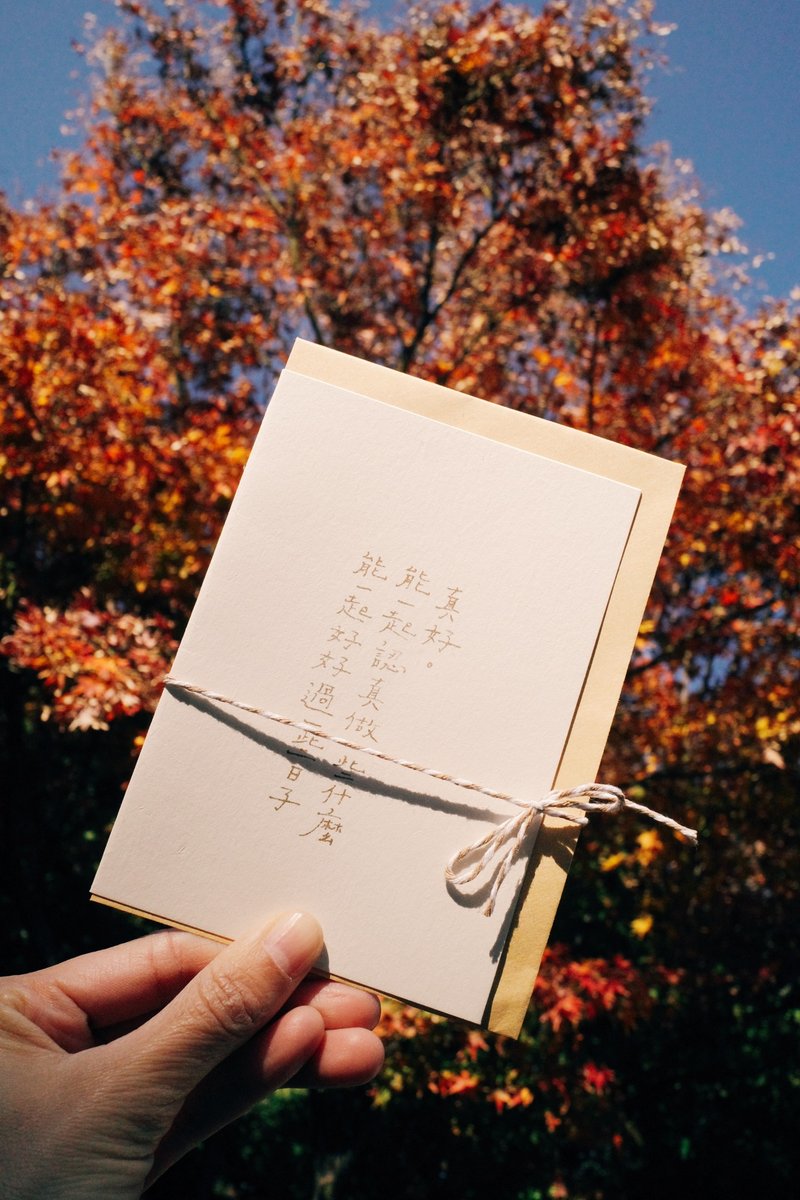 真好。
能一起認真做些什麼
能一起好好過一些日子